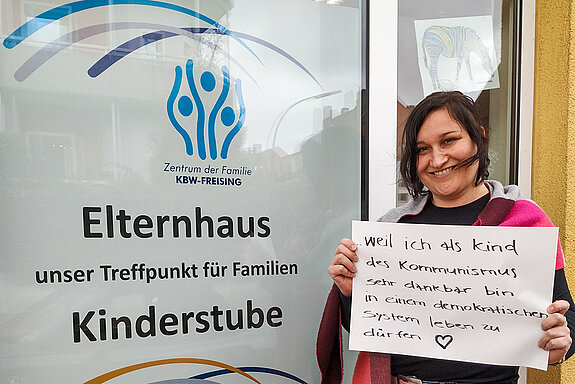 Zentrum der Familie
KBW-FREISING
Elternhaus
unser Treffpunkt für Familien
Kinderstube
weil ich als Kind
des Kommunismus
sehr dankbar bin
in einem demokratischen
System leben zu
dürfen ♡